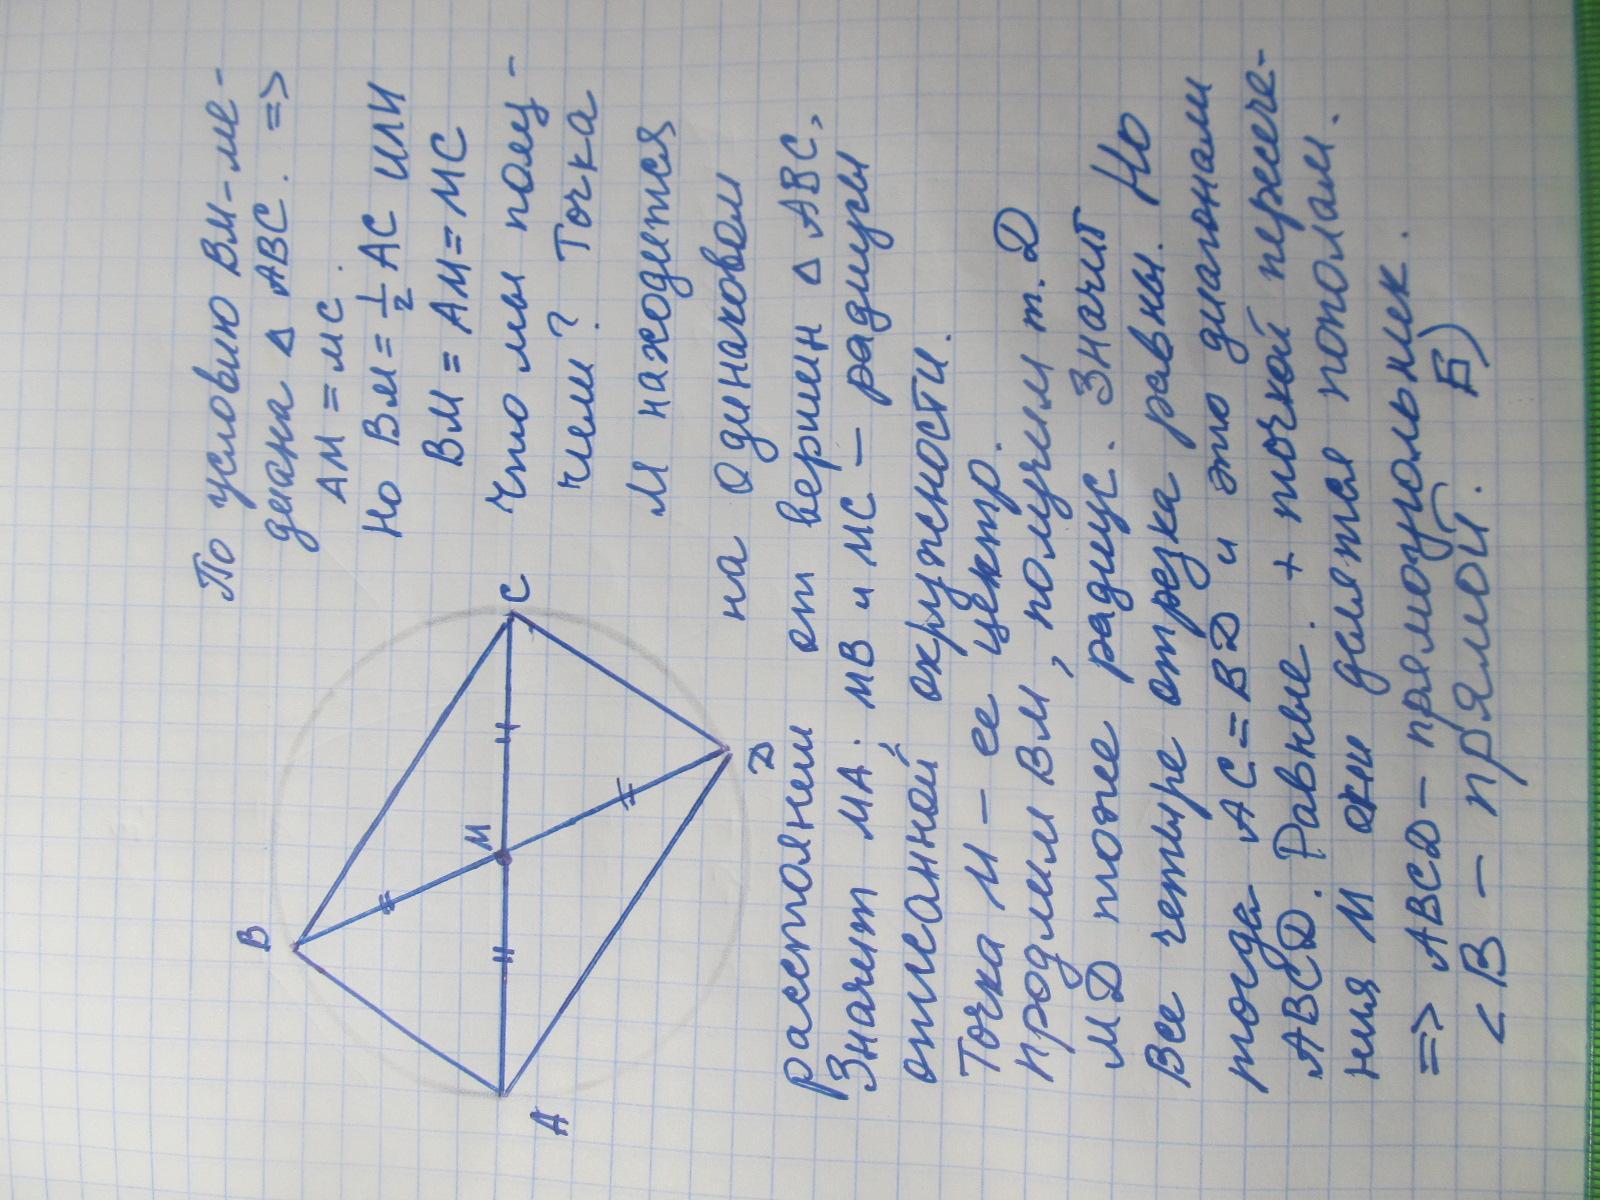 По условию ВМ-ме-
диана △ АВС. =>
АМ = МС.
Но ВМ = 1/2 АС ИЛИ
ВМ = АМ = МС
Что мы полу-
чим? Точка
М находится
на одинаковом
расстоянии от вершин △ АВС,
Значит МА. МВ и МС – радиусы
описанной окружности.
Точка М – ее центр.
продлим ВМ, получим т. Д
МД тоже радиус. Значит
Все четыре отрезка равны. Но
тогда АС = ВД и это диагонали
АВСД. Равные. + точкой пересече-
ния М они делятся пополам.
=> АВСД – прямоугольник.
<В – прямой. Б)
В
М
С
А
Д